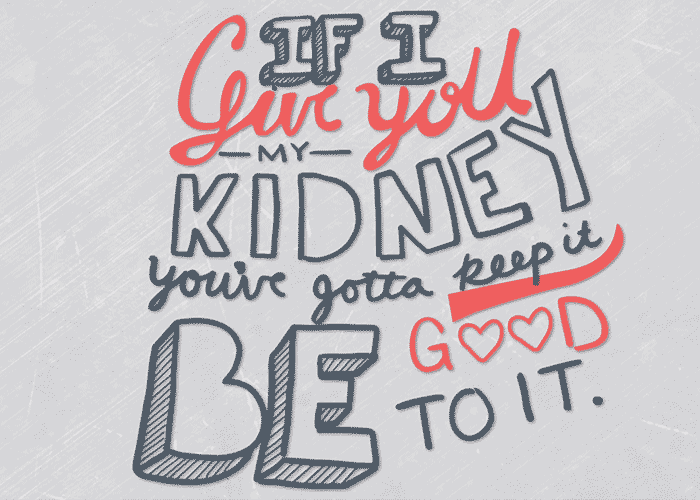 IF I
Give you
MY
KIDNEY
you've gotta keep it
BE
GOOD
TO IT.